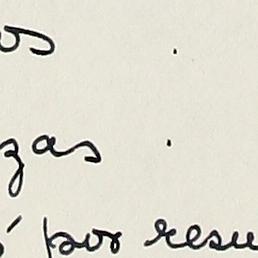 os .
zas .
por resu